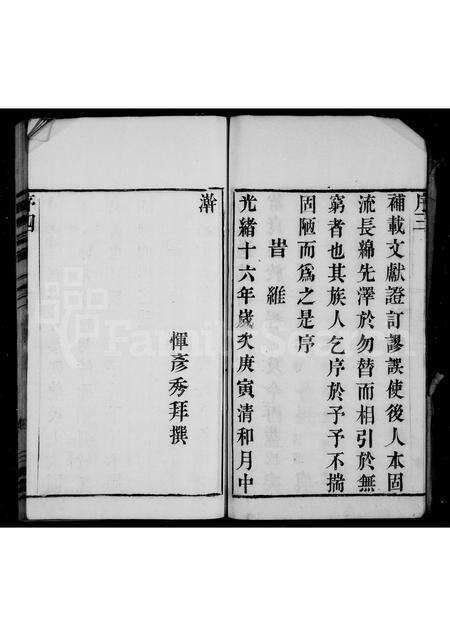 序三
補載文獻證訂謬誤使後人本固
流長綿先澤於勿替而相引於無
窮者也其族人乞序於予予不揣
固陋而為之是序
旹維
光緒十六年歲次庚寅清和月中
澣
惲彥秀拜撰
序四
FamilySearch